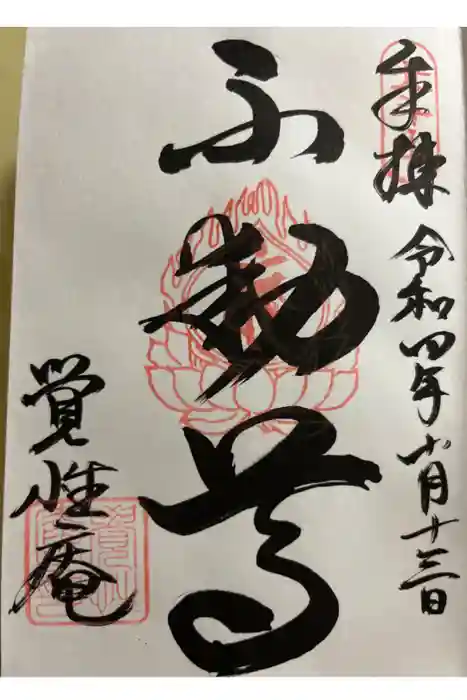 奉拝
令和四年 月十三日
不動尊
覺性庵